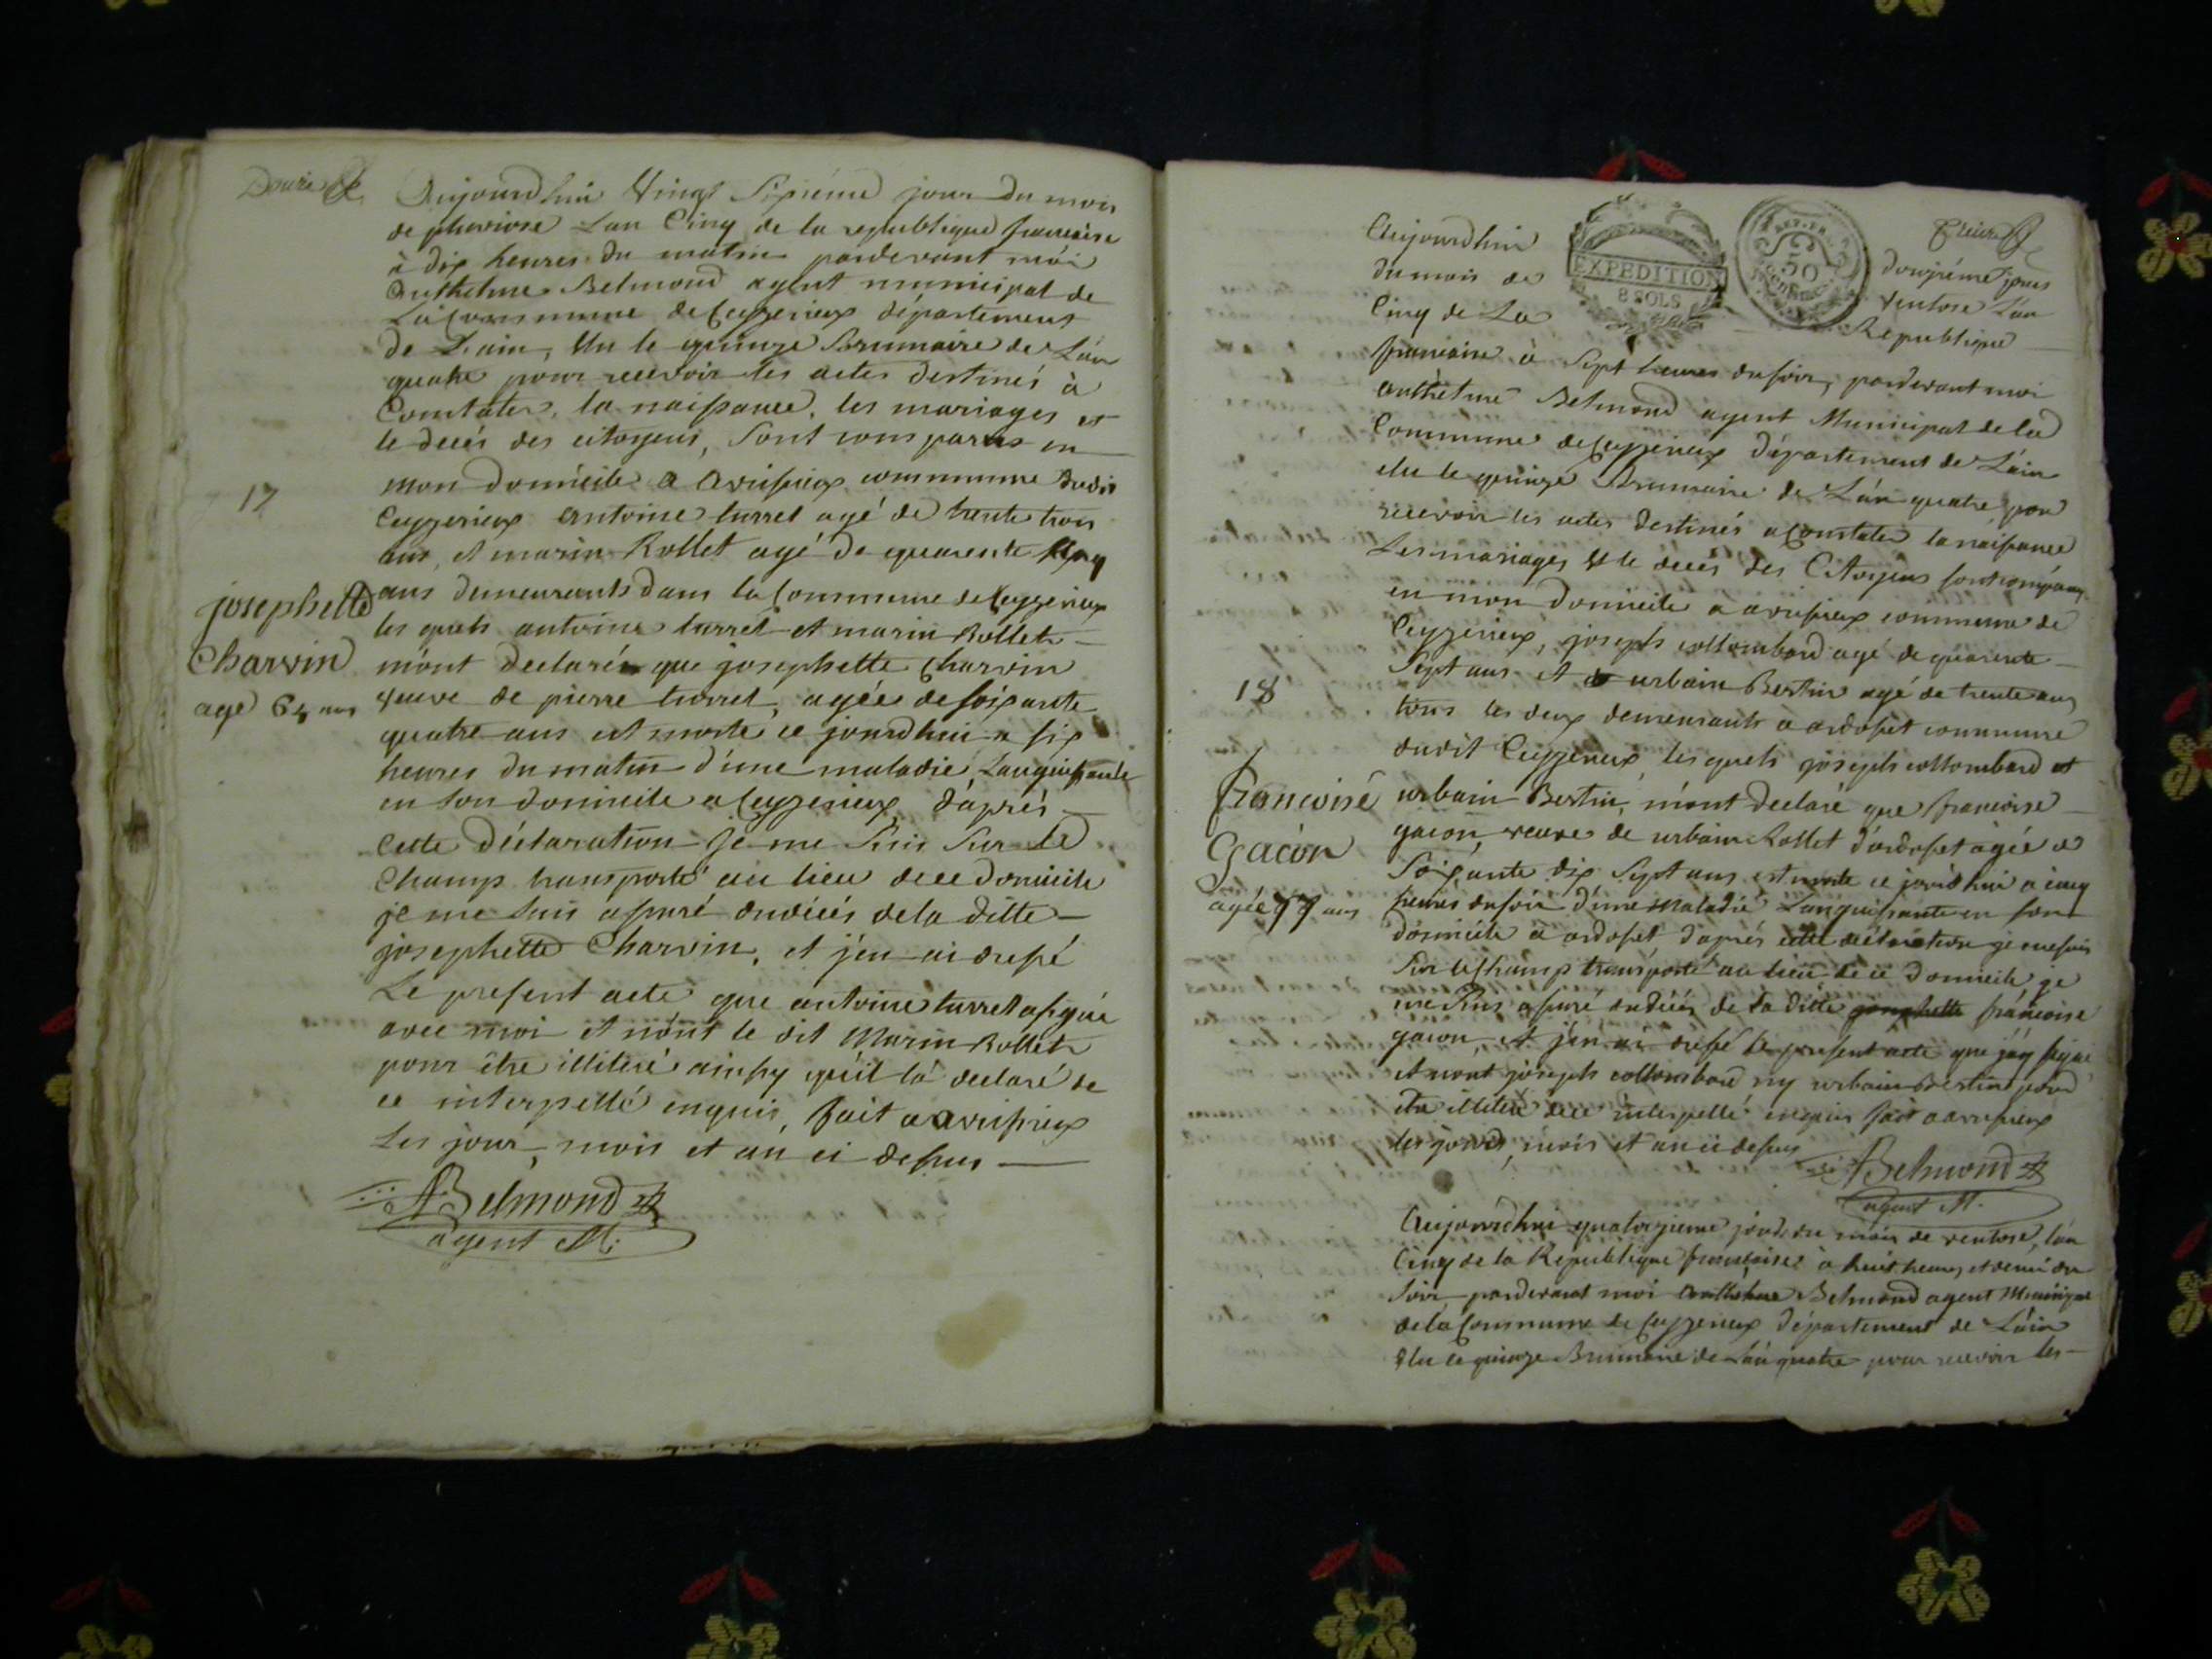 Aujourdhui Vingt Sixiéme jour du mois
de pluviose Lan Cinq de la republique francaise
à dix heures du matin pardevant moi
Anthelme Belmond agent municipal de
La Commune de Ceyzerieux département
de Lain, Elu le quinze Brumaire de Lán
quatre pour recevoir les actes destinés à
Constater la naissance, les mariages et
le decés des citoyens, sont comparus en
mon domicile a avrissieux commune dudit
17
Ceyzerieux antoine turrel agé de trente trois
ans, et marin Rollet agé de quarente cinq
josephette
ans demeurants dans la Commune de Ceyzerieux
les quels antoine turrel et marin Rollet
Charvin
mónt declaré que josephette Charvin
veuve de pierre turrel, agée de soixante
age 64 ans
quatre ans est morte ce jourdhui a six
heures du matin d'une maladie Languissante
en son domicile a Ceyzerieux, d'aprés
Cette déclaration je me suis sur le
Champ transporté au lieu de ce domicile
je me suis assuré du décés de la ditte
josephette Charvin, et j'en ai dressé
Le present acte que antoine turrel a signé
avec moi et nónt le dit Marin Rollet
pour être illiteré ainsy qu'il lá declaré de
ce interpellé enquis, fait a avrissieux
Les jour, mois et an ci dessus
ABelmond
agent M.
EXPEDITION
8 SOLS
REP. FRA.
50
Aujourdhui douzième jour
du mois de ventose Lán
Cinq de La Republique
francaise à sept heures du soir, pardevant moi
anthelme Belmond agent Municipal de la
Commune de Ceyzerieux Département de Láin
elu le quinze Brumaire de Lán quatre pour
recevoir les actes destinés a Constater la naissance
Les mariages et le decés des Citoyens sont comparus
en mon domicile a avrissieux commune de
Ceyzerieux, joseph collombard agé de quarente
18
Sept ans et urbain Bertin agé de trente ans
tous les deux demeurants a ardosset commune
dudit Ceyzerieux, les quels joseph collombard et
francoise
urbain Bertin, mónt declaré que francoise
Gacon
gacon, veuve de urbain Rollet d'ardosset agée de
Soixante dix Sept ans est morte ce jourdhui a cinq
agée 77 ans
heures du soir d'une maladie Languissante en son
domicile a ardosset, d'aprés cette déclaration je me suis
sur le champ transporté au lieu de ce domicile, je
me suis assuré du décés de la ditte josephette francoise
gacon, et j'en ai dressé le present acte que j'ay signé
et nont joseph collombard ny urbain Bertin pour
etre illiteré de ce interpellé enquis fait a avrissieux
les jours, mois et an ci dessus
ABelmond
agent M.
Aujourdhui quatorzieme jour du mois de ventose, lán
Cinq de la Republique francaise à huit heures et demi du
soir pardevant moi anthelme Belmond agent Municipal
de la Commune de Ceyzerieux Département de Láin
Elu le quinze Brumaire de lán quatre pour recevoir les